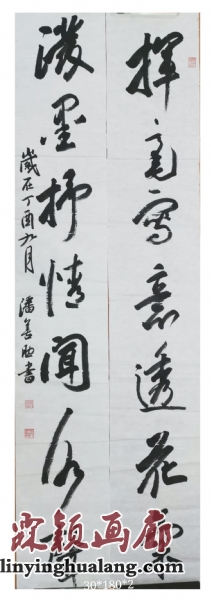 揮毫寫意透花窗
潑墨抒情聞水聲
歲在丁酉九月 潘善助書
霖颖画廊
linyinghualang.com
30*180*2